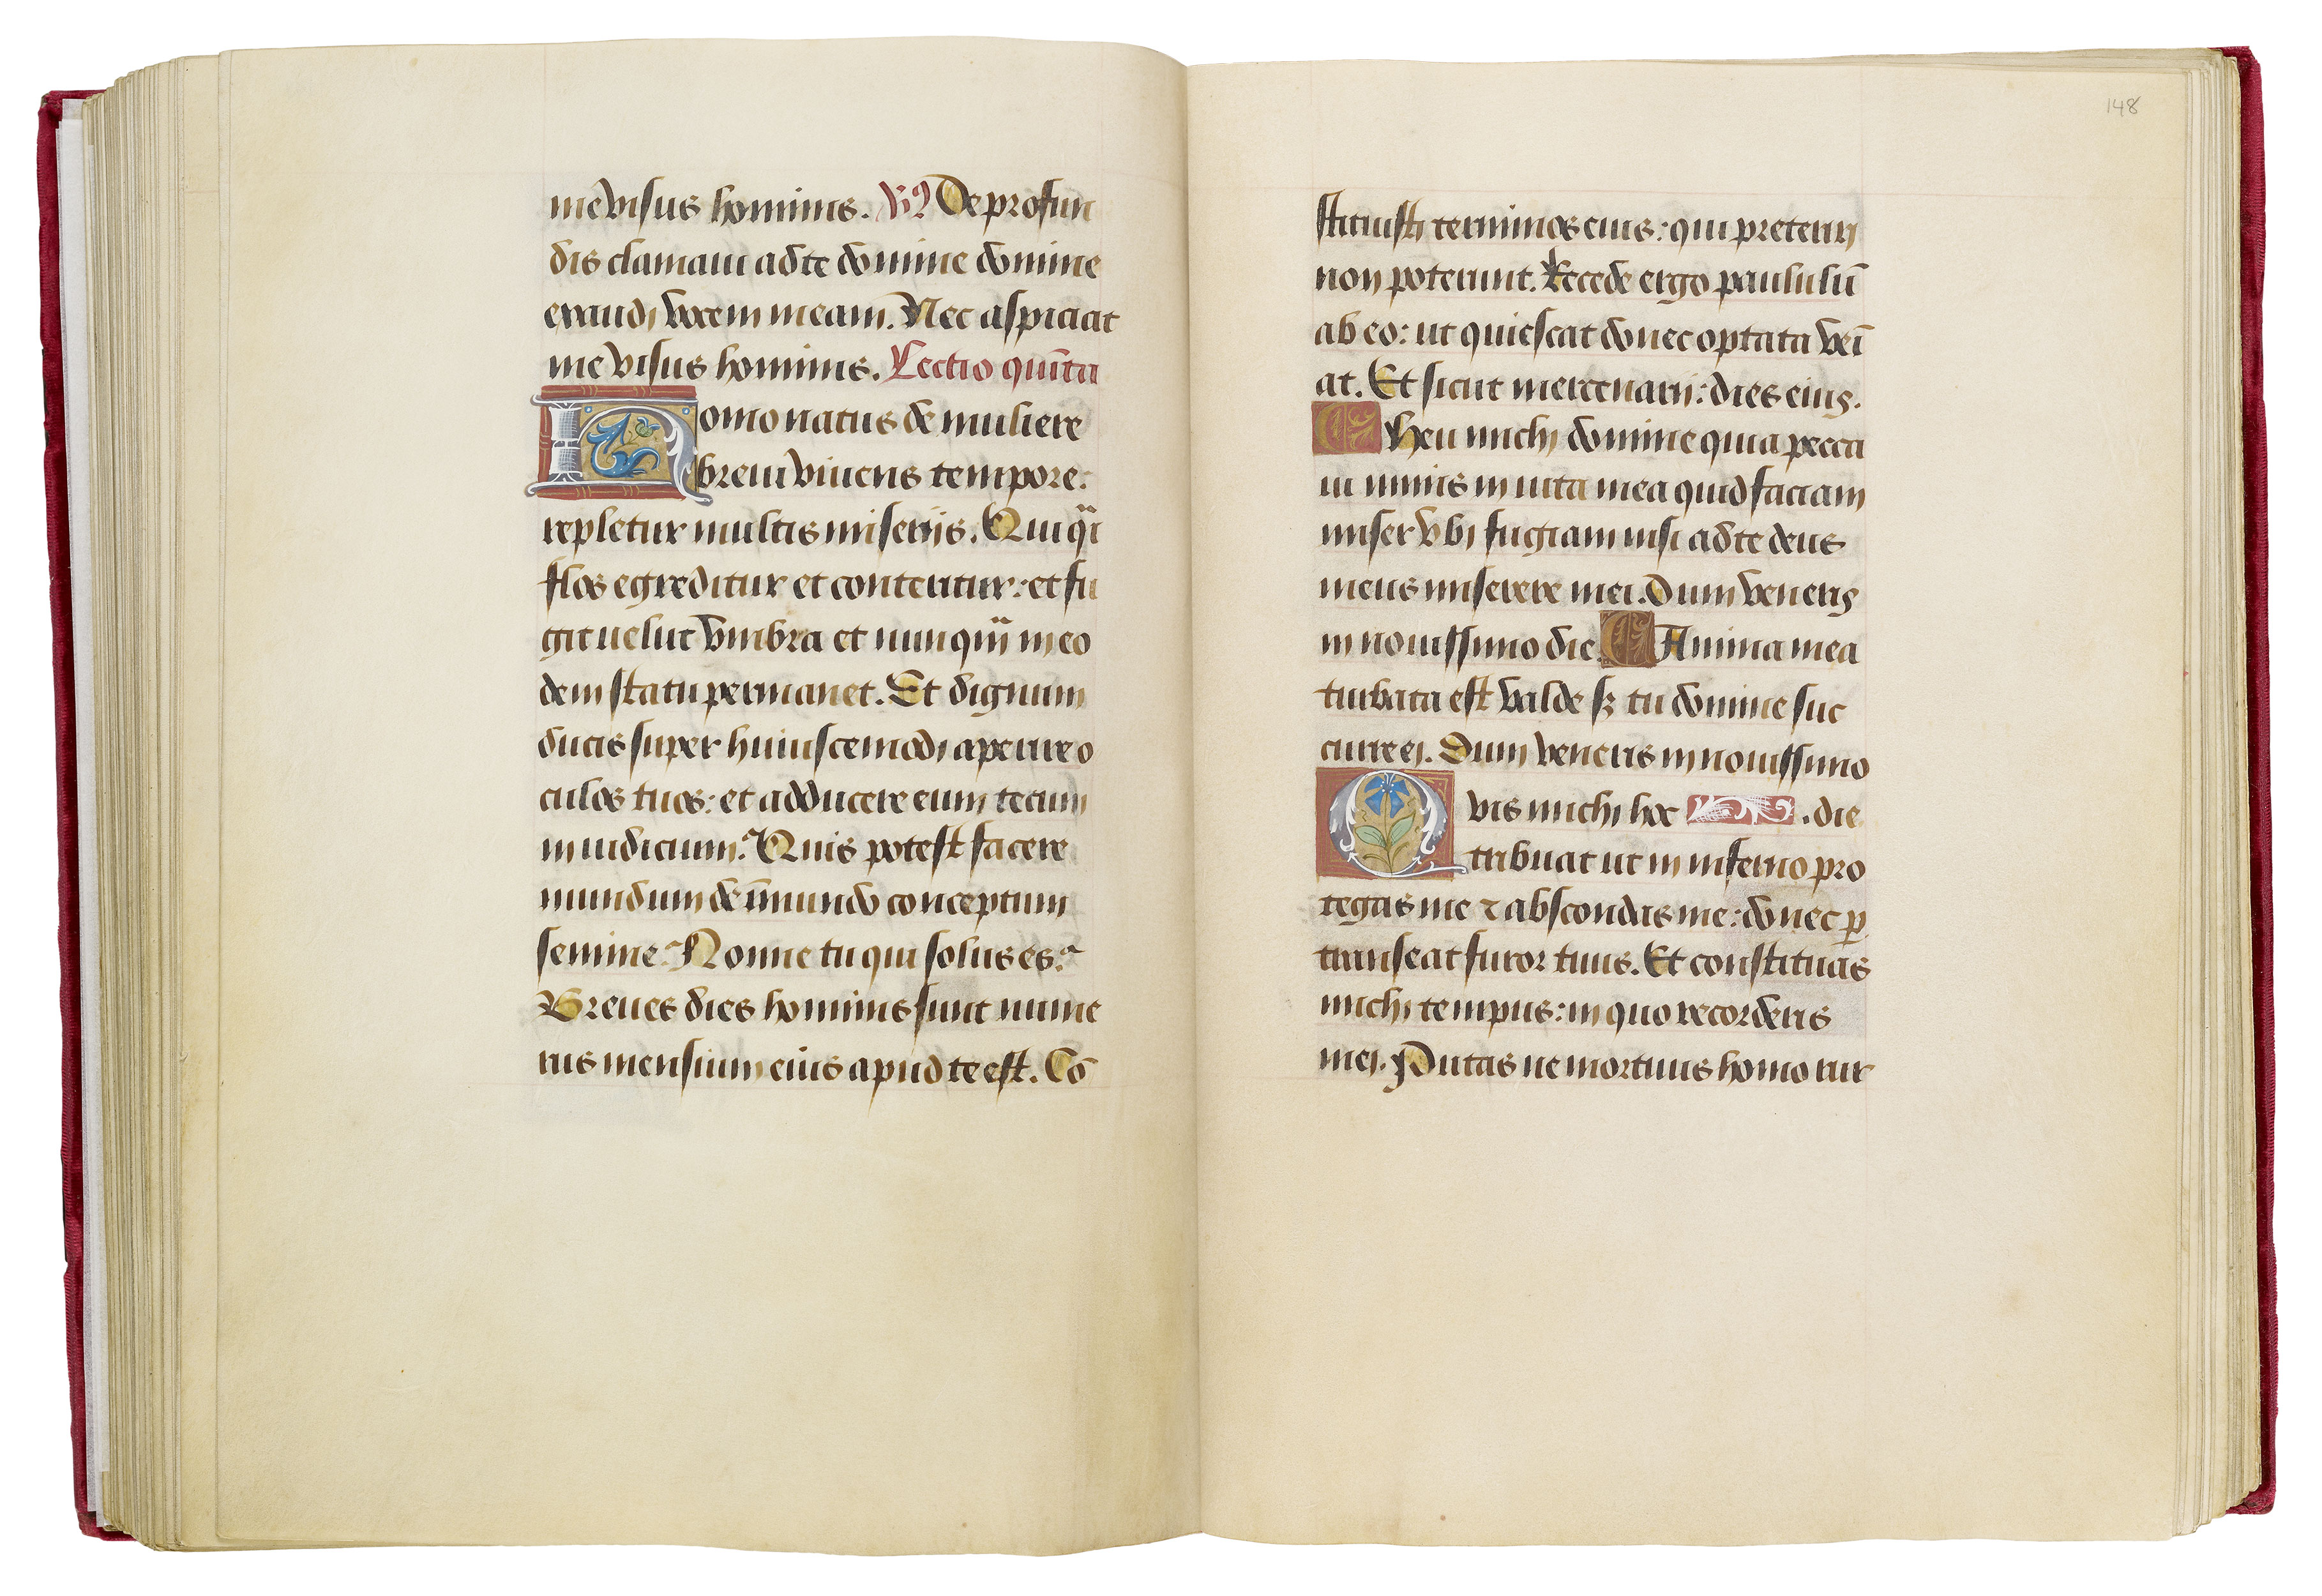 me visus hominis. V9 De profun
dis clamavi ad te domine domine
exaudi vocem meam. Nec aspiciat
me visus hominis. Lectio quīta
Homo natus de muliere
brevi vivens tempore:
repletur multis miseriis. Qui qi
flos egreditur et conteritur: et fu
git uelut vmbra et nunqm̄ in eo
dem statu permanet. Et dignum
ducis super huiuscemodi aperire o
culos tuos: et adducere eum tecum
in iudicium? Quis potest facere
mundum de īmundo conceptum
semine? Nonne tu qui solus es?
Breues dies hominis sunt nume
rus mensium eius apud te est. Cō
148
stituisti terminos eius: qui preteriri
non poterunt. Recede ergo paululū
ab eo: ut quiescat donec optata veī
at. Et sicut mercenarii: dies eius.
Eheu michi domine quia pecca
ui nimis in uita mea quid faciam
miser vbi fugiam nisi ad te deus
meus miserere mei. Dum veneris
in nouissimo die. Anima mea
turbata est valde sꝫ tu domine suc
curre ei. Dum veneris in nouissimo
die.
Quis michi hoc
tribuat ut in inferno pro
tegas me ⁊ abscondas me: donec ꝑ
transeat furor tuus. Et constituas
michi tempus: in quo recorderis
mei. Putas ne mortuus homo rur